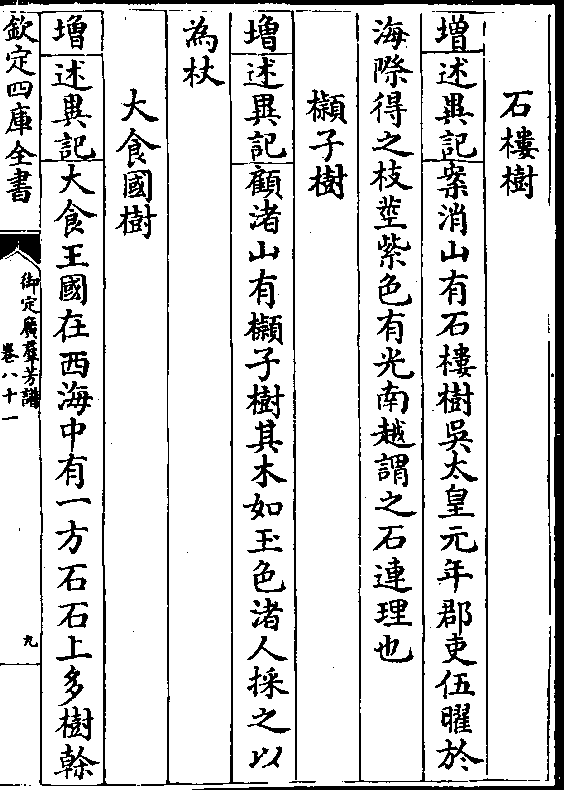 石樓樹
增述異記案消山有石樓樹吳太皇元年郡吏伍曜於
海際得之枝莖紫色有光南越謂之石連理也
櫴子樹
增述異記顧渚山有櫴子樹其木如玉色渚人採之以
為杖
大食國樹
增述異記大食王國在西海中有一方石石上多樹幹
欽定四庫全書
御定廣羣芳譜
卷八十一
九